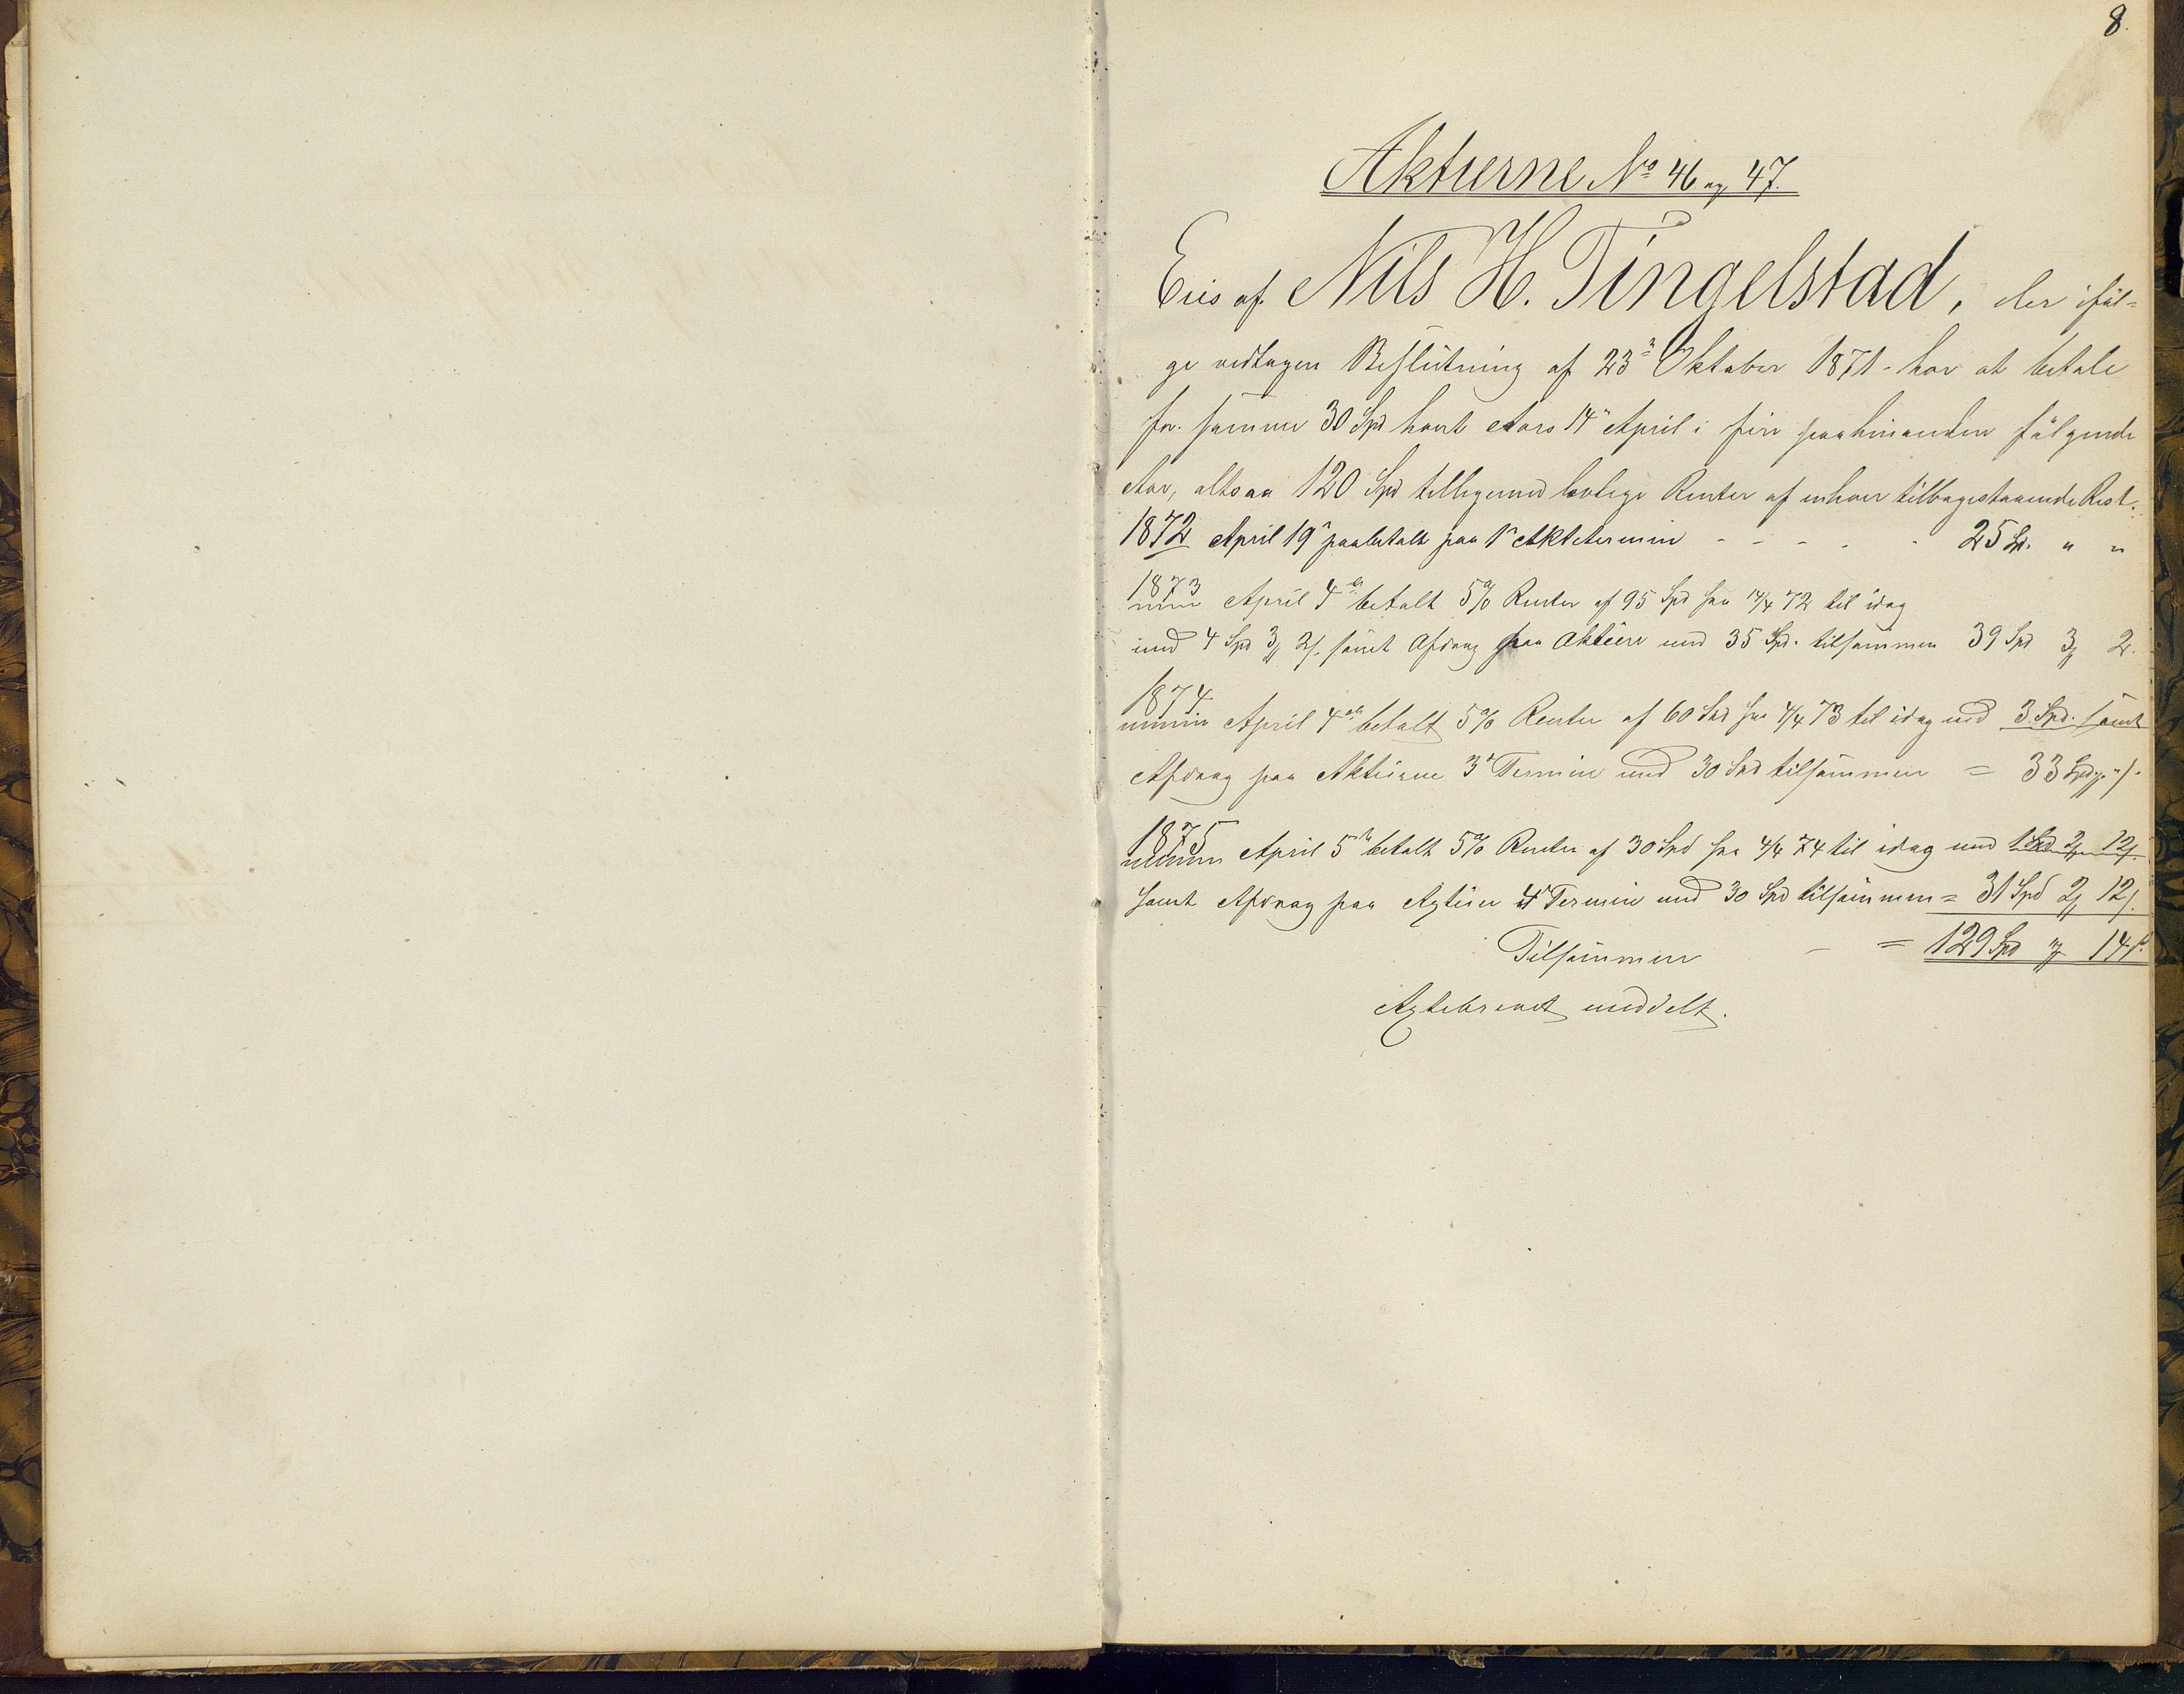 8.
Aktierne No 46 og 47.
Eies af Nils H. Tingelstad, der iføl-
ge vedtagen Beslutning af 23de Oktober 1871 - har at betale
for samme 30 Spd hvert Aars 14de April i fire paahinanden følgende
Aar, altsaa 120 Spd tilligemed lovlige Renter af enhver tilbagestaaende Rest.
1872 April 19de paabetalt paa 1ste Aktietermin - - - - - 25 Sp. " "
1873 April 4de betalt 5% Renter af 95 Spd fra 14/4 72 til idag
med 4 Spd 3 2 s. samt Afdrag paa Aktiene med 35 Spd. tilsammen 39 Spd 3 2.
1874 April 4de betalt 5% Renter af 60 Spd fra 4/4 73 til idag med 3 Spd. samt
Afdrag paa Aktierne 3de Termin med 30 Spd tilsammen = 33 Spd " "
1875 April 5te betalt 5% Renter af 30 Spd fra 4/4 74 til idag med 1 Spd 2 12 s.
samt Afdrag paa Agtier 4de Termin med 30 Spd tilsammen = 31 Spd 2 12 s.
Tilsammen - = 129 Spd " 14 s.
Agtebrevet meddelt.